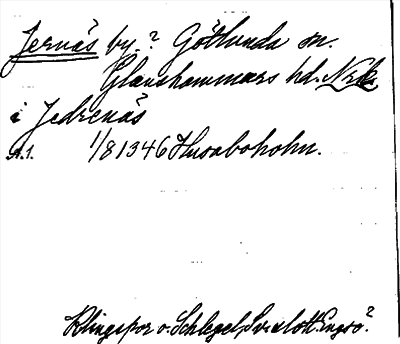 Jernäs by.? Götlunda sn.
Glanshammars hd. Nrk.
i Jedrenäs
A.1. 1/8 1346 Husaboholm.
Klingspor o. Schlegel, Sv. slott. Engsö?